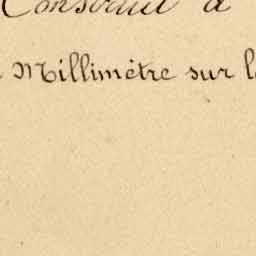 Construit à
Millimètre sur l